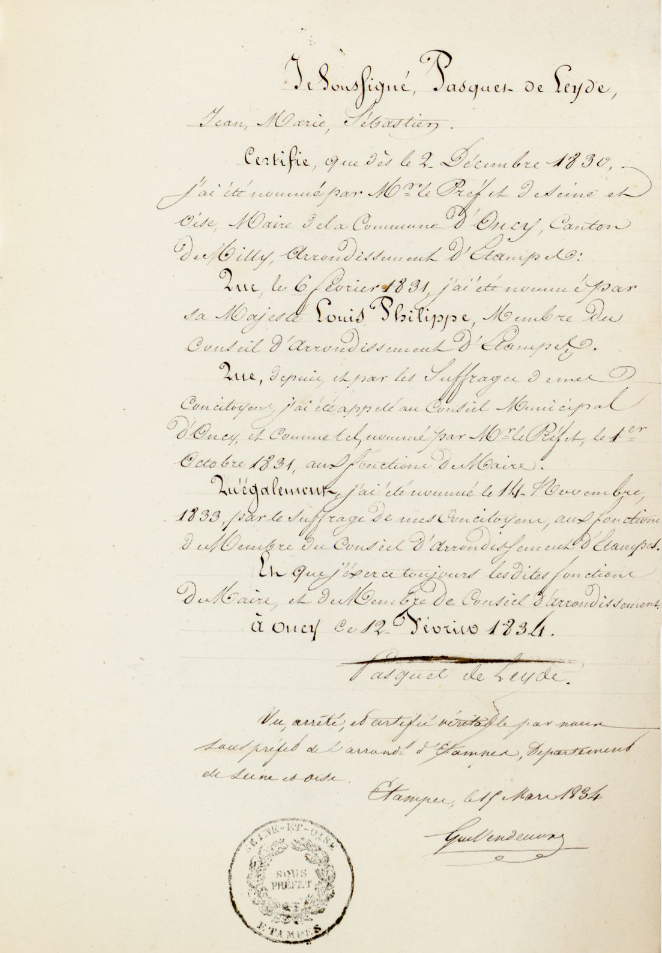 Je Soussigné, Pasquet de Leyde,
Jean, Marie, Sébastien.
Certifie, que dès le 2 Décembre 1830,
j'ai été nommé par Mr. le Préfet de Seine et
Oise, Maire de la Commune d'Oncy, Canton
de Milly, arrondissement d'Etampes:
Que, le 6 février 1831, j'ai été nommé par
sa Majesté Louis Philippe, Membre du
Conseil d'arrondissement d'Etampes.
Que, depuis, et par les Suffrages de mes
Concitoyens, j'ai été appelé au Conseil Municipal
d'Oncy, et comme tel, nommé par Mr. le Préfet, le 1er
Octobre 1831, aux fonctions de Maire.
Qu'également, j'ai été nommé le 14 Novembre,
1833, par le suffrage de mes Concitoyens, aux fonctions
de Membre du Conseil d'Arrondissement d'Etampes.
En que j'éxerce toujours les dites fonctions
de Maire, et de Membre de Conseil d'arrondissement
à Oncy ce 12 Février 1834.
Pasquet de Leyde.
Vu, arrêté, et certifié véritable par nous
sous préfet de l'arrondt d'Etampes, Département
de Seine et Oise.
Etampes, le 15 Mars 1834
SEINE-ET-OISE
SOUS
PRÉFET
ETAMPES